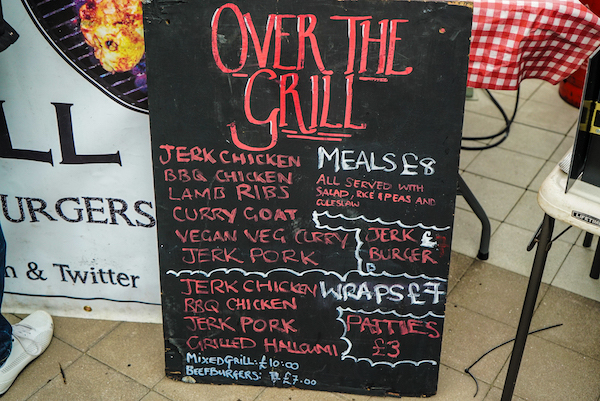 OVER THE
GRILL
JERK CHICKEN
BBQ CHICKEN
LAMB RIBS
CURRY GOAT
VEGAN VEG CURRY
JERK PORK
MEALS £8
ALL SERVED WITH
SALAD, RICE & PEAS AND
COLESLAW
JERK £7
BURGER
JERK CHICKEN
BBQ CHICKEN
JERK PORK
GRILLED HALLOUMI
WRAPS £7
PATTIES
£3
MIXED GRILL: £10:00
BEEFBURGERS: £7.00
LL
URGERS
& Twitter
LIFETIME